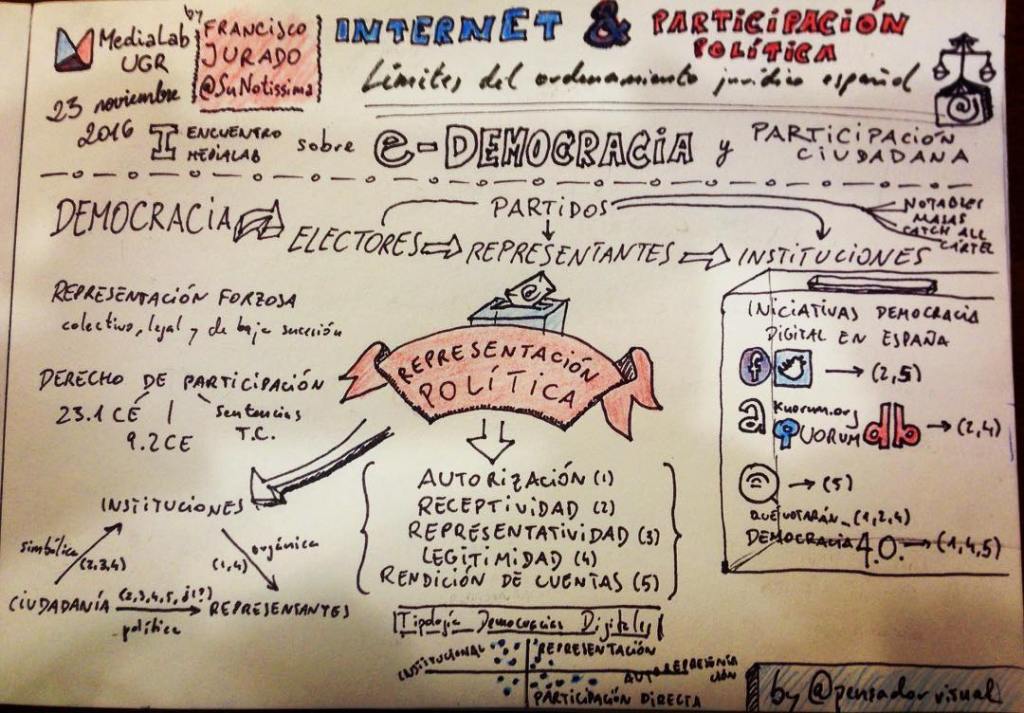 MediaLab
UGR
by
FRANCISCO
JURADO
@SuNotissima
23 noviembre
2016
INTERNET & PARTICIPACIÓN
POLÍTICA
Límites del ordenamiento jurídico español
I ENCUENTRO
MEDIALAB
sobre e-DEMOCRACIA y PARTICIPACIÓN
CIUDADANA
DEMOCRACIA
PARTIDOS
NOTABLES
MASAS
CATCH ALL
CÁRTEL
ELECTORES
REPRESENTANTES
INSTITUCIONES
REPRESENTACIÓN FORZOSA
colectivo, legal y de baja
DERECHO DE PARTICIPACIÓN
23.1 CE
9.2 CE
Sentencias
T.C.
REPRESENTACIÓN
POLÍTICA
AUTORIZACIÓN (1)
RECEPTIVIDAD (2)
REPRESENTATIVIDAD (3)
LEGITIMIDAD (4)
RENDICIÓN DE CUENTAS (5)
INSTITUCIONES
simbólica
(2,3,4)
orgánica
(1,4)
CIUDADANÍA
(2,3,4,5, ¿1?)
política
REPRESENTANTES
INICIATIVAS DEMOCRACIA
DIGITAL EN ESPAÑA
f
(2,5)
a
Kuorum.org
QUORUM
db
(2,4)
(5)
QUÉ VOTARÁN (1,2,4)
DEMOCRACIA 4.0. (1,4,5)
Tipología Democracias Digitales
INSTITUCIONAL
REPRESENTACIÓN
PARTICIPACIÓN DIRECTA
by @pensadorvisual